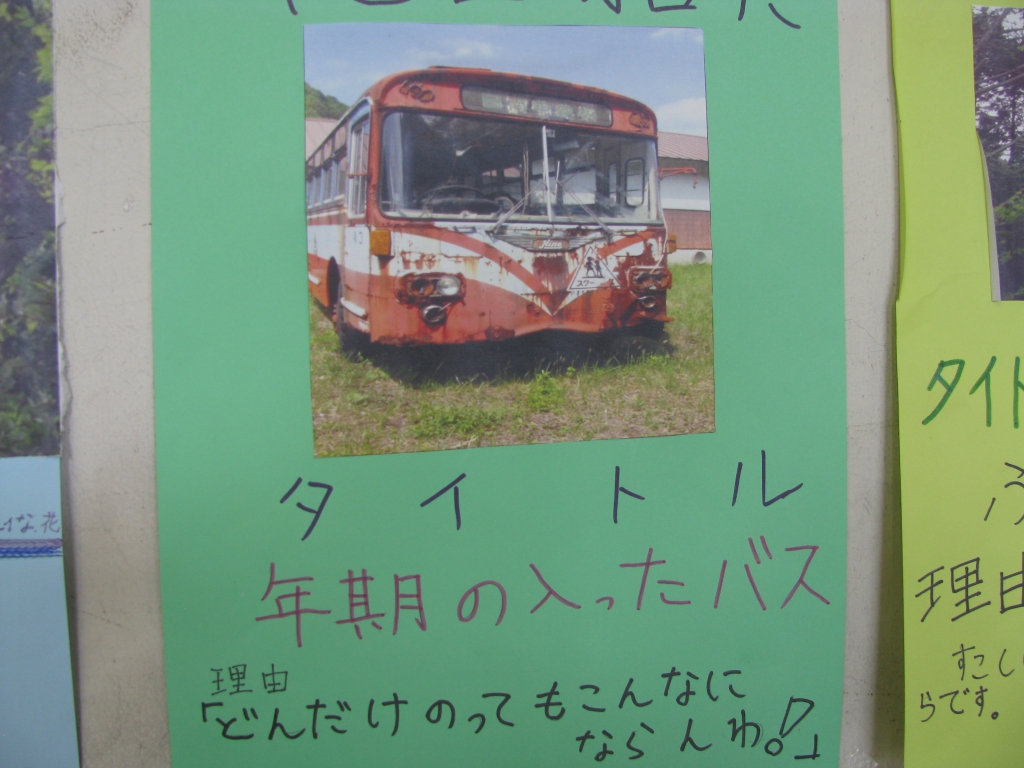 タイトル
年期の入ったバス
理由
「どんだけのってもこんなに
ならんわ!」
スクー
な花
タイト
理由
すこし
らです。